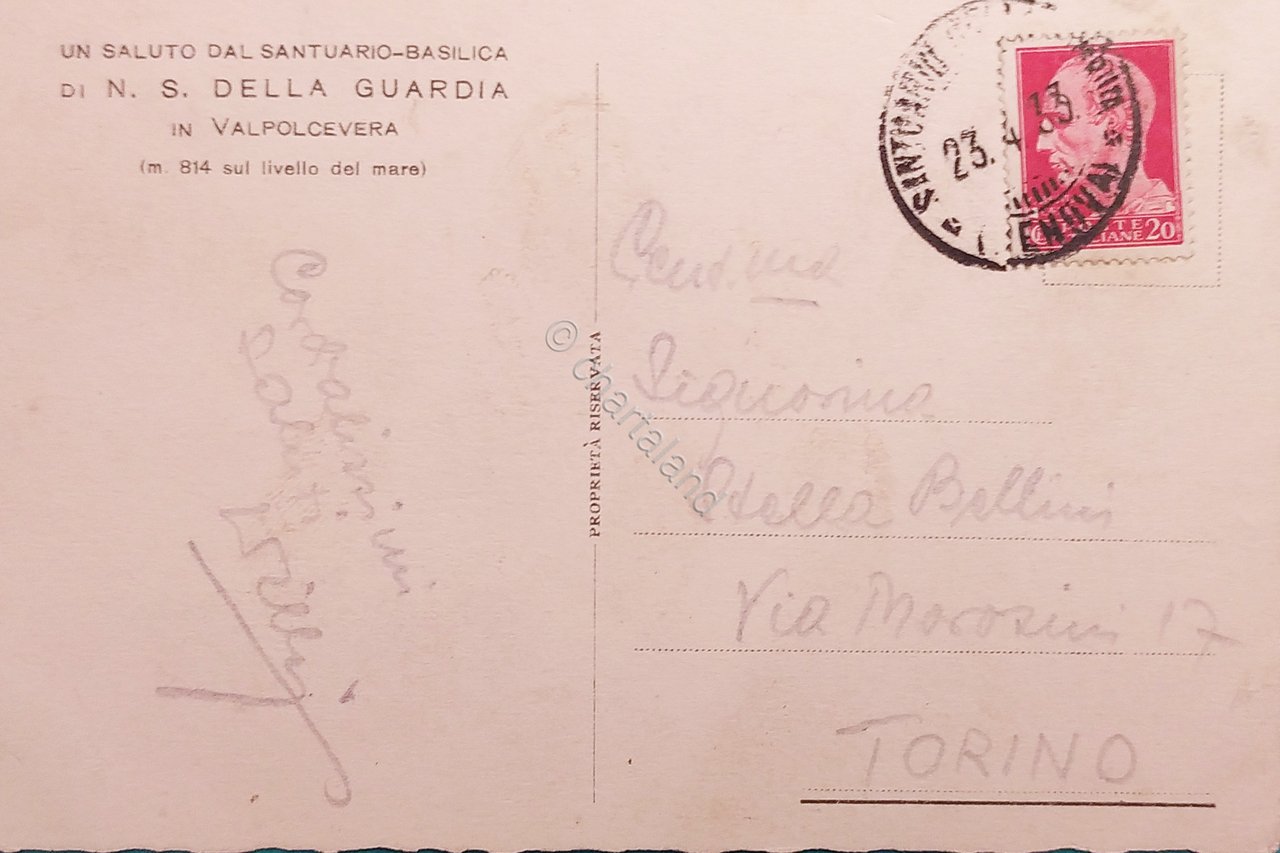 UN SALUTO DAL SANTUARIO-BASILICA
DI N. S. DELLA GUARDIA
IN VALPOLCEVERA
(m. 814 sul livello del mare)
Cordialissimi
Saluti
PROPRIETÀ RISERVATA
© chartaland
23. 4
POSTE
ITALIANE 20
Signorina
Stella Bellini
Via Morosini 17
TORINO